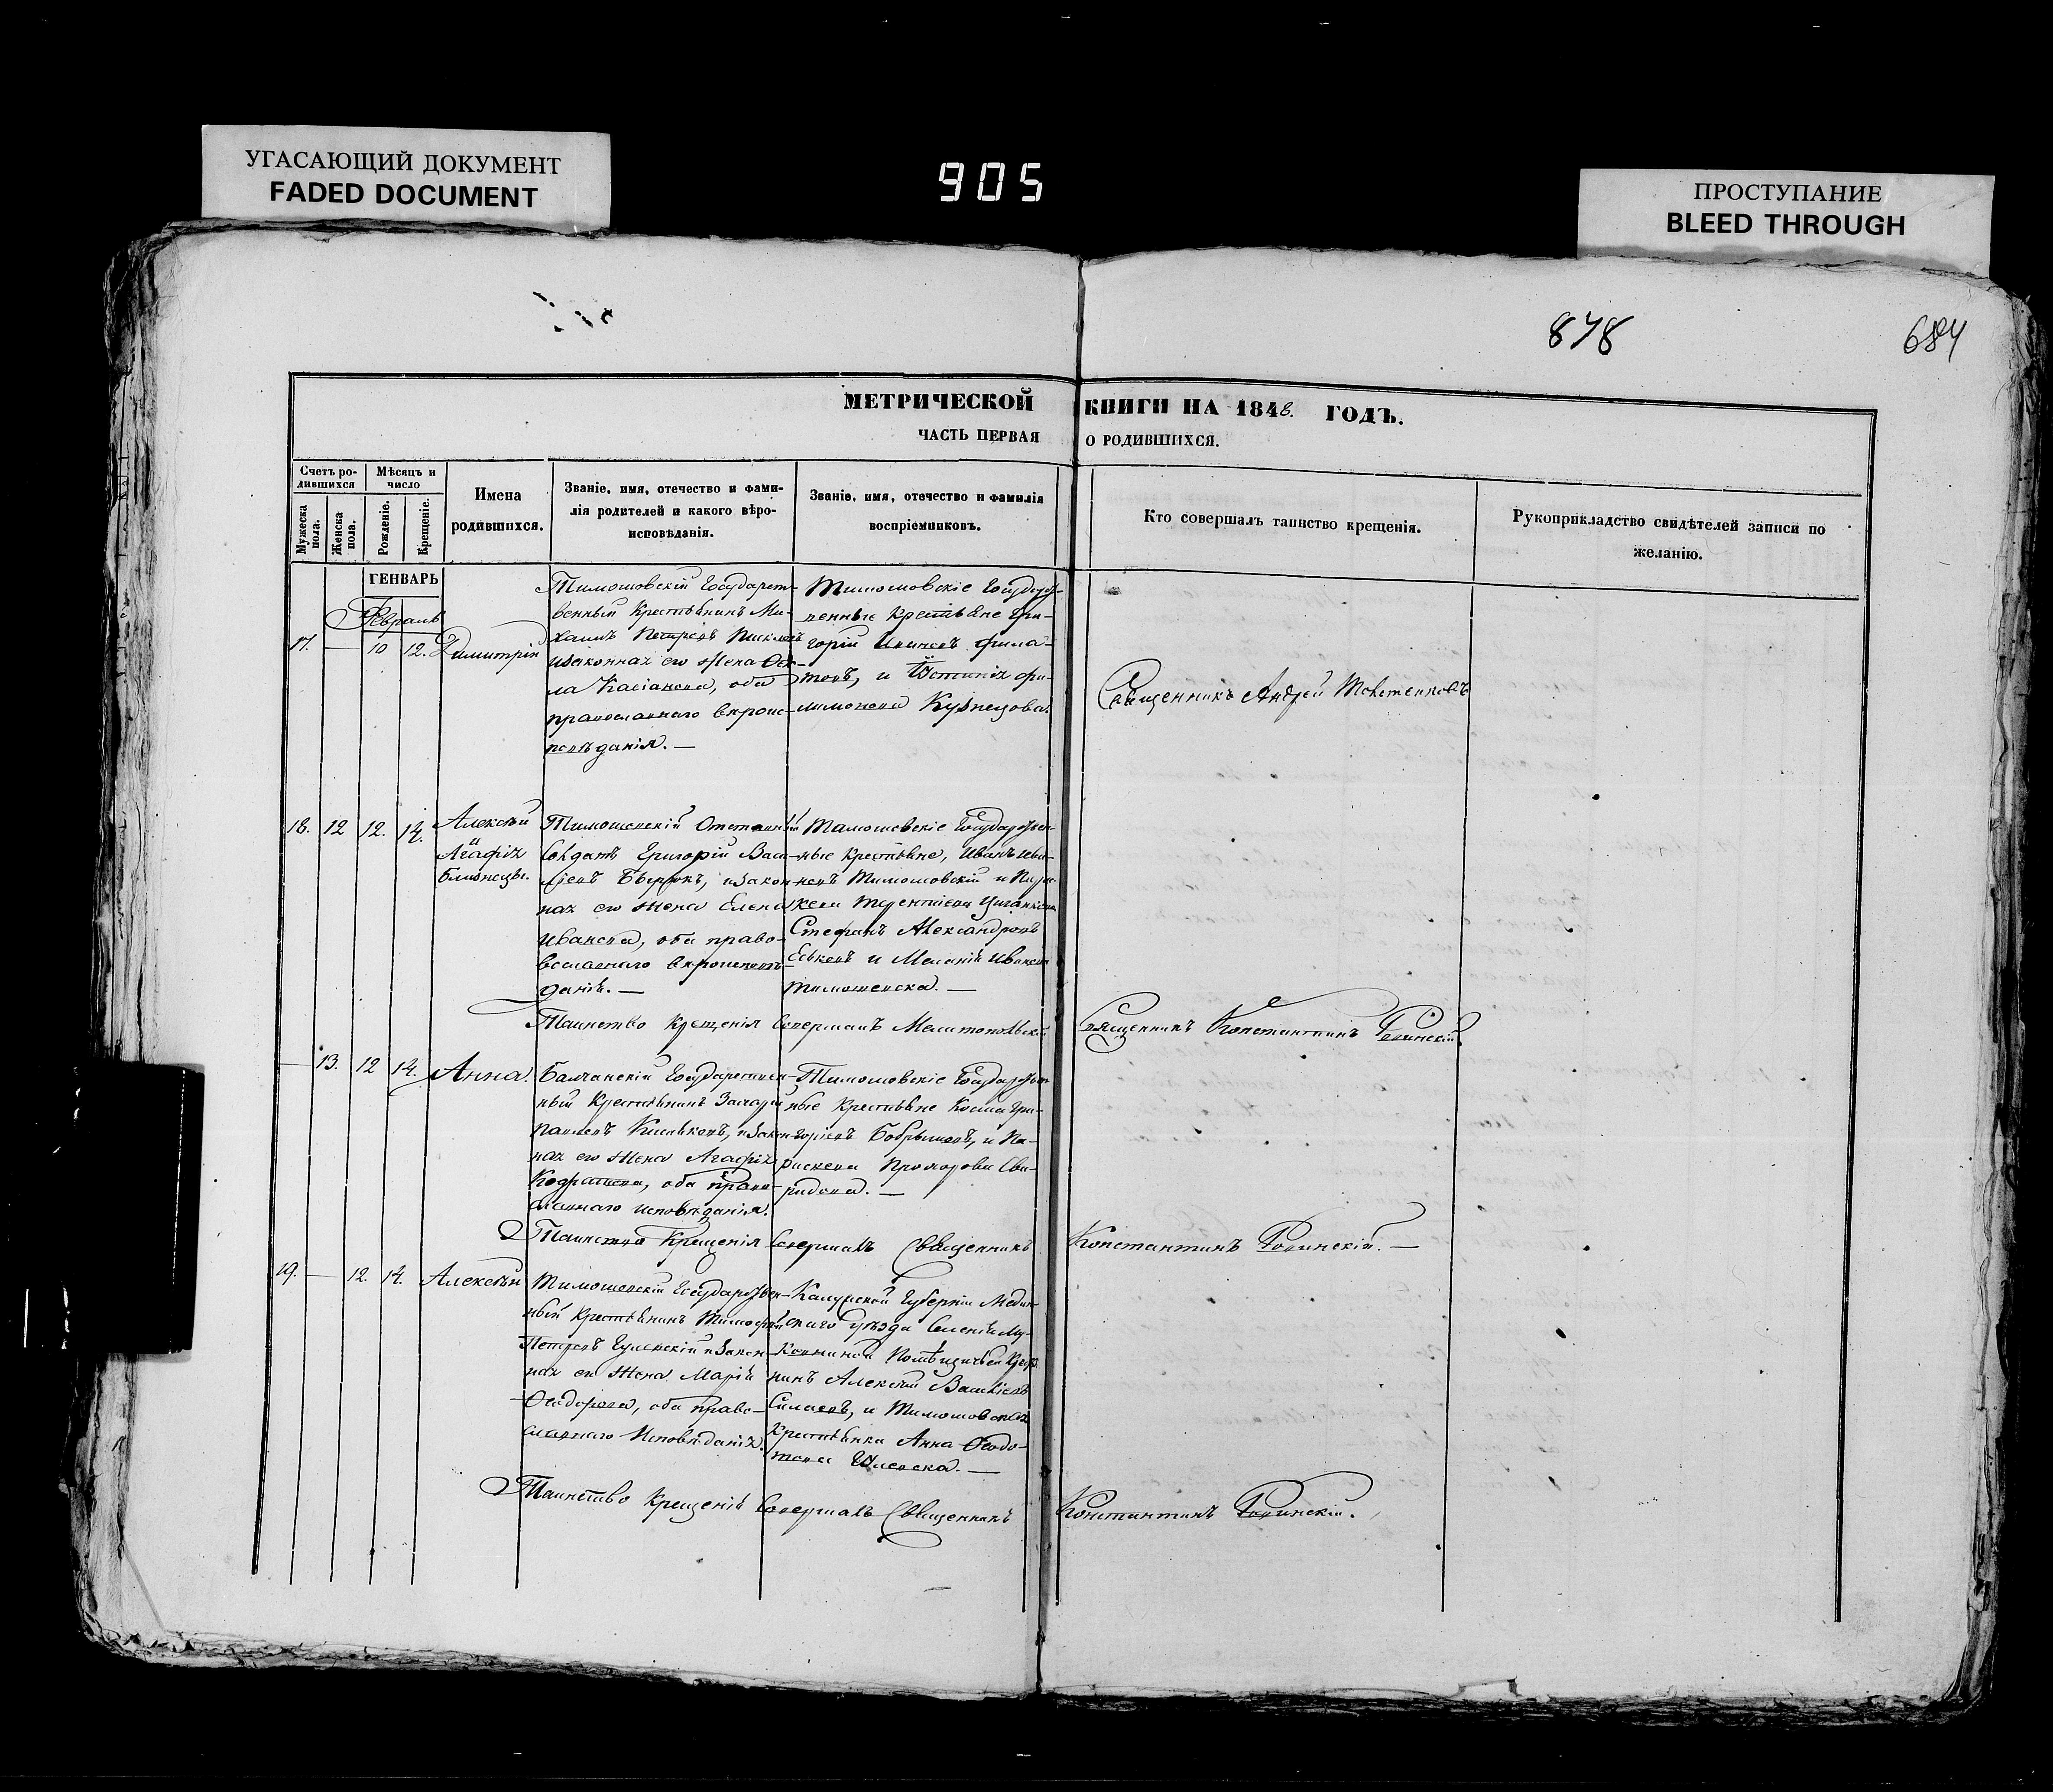 УГАСАЮЩИЙ ДОКУМЕНТ
FADED DOCUMENT
905
ПРОСТУПАНИЕ
BLEED THROUGH
878
684
МЕТРИЧЕСКОЙ КНИГИ НА 1848. ГОДЪ.
ЧАСТЬ ПЕРВАЯ О РОДИВШИХСЯ.
Счетъ ро-
дившихся
Мужеска
пола.
Женска
пола.
Мѣсяцъ и
число
Рожденіе.
Крещеніе.
Имена
родившихся.
Званіе, имя, отечество и фами-
лія родителей и какого вѣро-
исповѣданія.
Званіе, имя, отечество и фамилія
воспріемниковъ.
Кто совершалъ таинство крещенія.
Рукоприкладство свидѣтелей записи по
желанію.
ГЕНВАРЬ
Февраль
17. — 10 12. Димитрій
Тимошовскій Государст-
венный Крестьянинъ Ми-
хаилъ Петровъ
изаконная его Жена Фек-
ла Касіанова, оба
православнаго вѣроис-
повѣданія. —
Тимошовскіе Государст-
венные Крестьяне Гри-
горій Ивановъ Фила-
товъ, и Устинія Фи-
лимонова Кузнецова.
Священникъ Андрей
18. 12 12. 14. Алексѣй
и
Агафія
близнецы.
Тимошевскій Отставный
Солдатъ Григорій Васи-
лієвъ изакон-
ная его Жена Елена
Иванова, оба право-
вославнаго вѣроисповѣ-
данія. —
Тамошевскіе Государствен-
ные Крестьяне, Иванъ Ива-
новъ Тимошовскій и Пара-
кева Терентиева
Стефанъ Александровъ
Еськовъ и Меланія Иванова
Тимошевска. —
Таинство Крещенія Совершалъ Мелитопольскій
Священникъ Константинъ Родинскій.
— 13. 12 14. Анна.
Балчанскій Государствен-
ный Крестьянинъ Захарій
Павловъ Кисльковъ, изакон-
ная его Жена Агафія
Кодратова, оба право-
славнаго исповѣданія.
Тимошовскіе Государствен-
ные Крестьяне Косма Гри-
горіевъ Бобрышовъ, и Па-
раскева Прохорова Сви-
ридова. —
Таинство Крещенія Совершалъ Священникъ
Константинъ Родинскій. —
19. — 12. 14. Алексѣй
Тимошевскій Государствен-
ный Крестьянинъ Тимофей
Петровъ Гулевскій изакон-
ная его Жена Марія
Феодорова, оба право-
славнаго Исповѣданія.
Калужской Губерніи Медын-
скаго уѣзда Селенія Му-
Помѣщичьей Крестья-
нинъ Алексѣй Василіевъ
Силаевъ, и Тимошовская
Крестьянка Анна Федо-
това Шлевска. —
Таинство Крещенія Совершалъ Священникъ
Константинъ Родинскій.